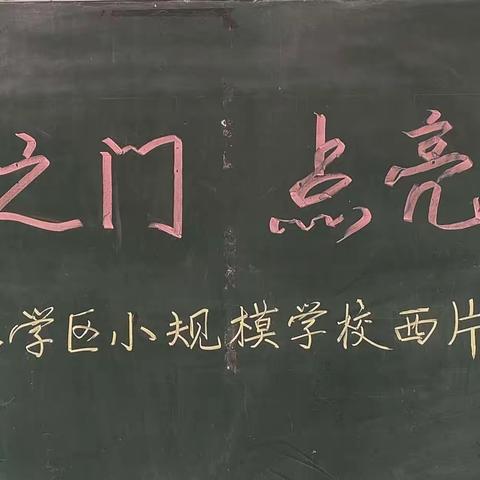 之门 点亮
学区小规模学校西片